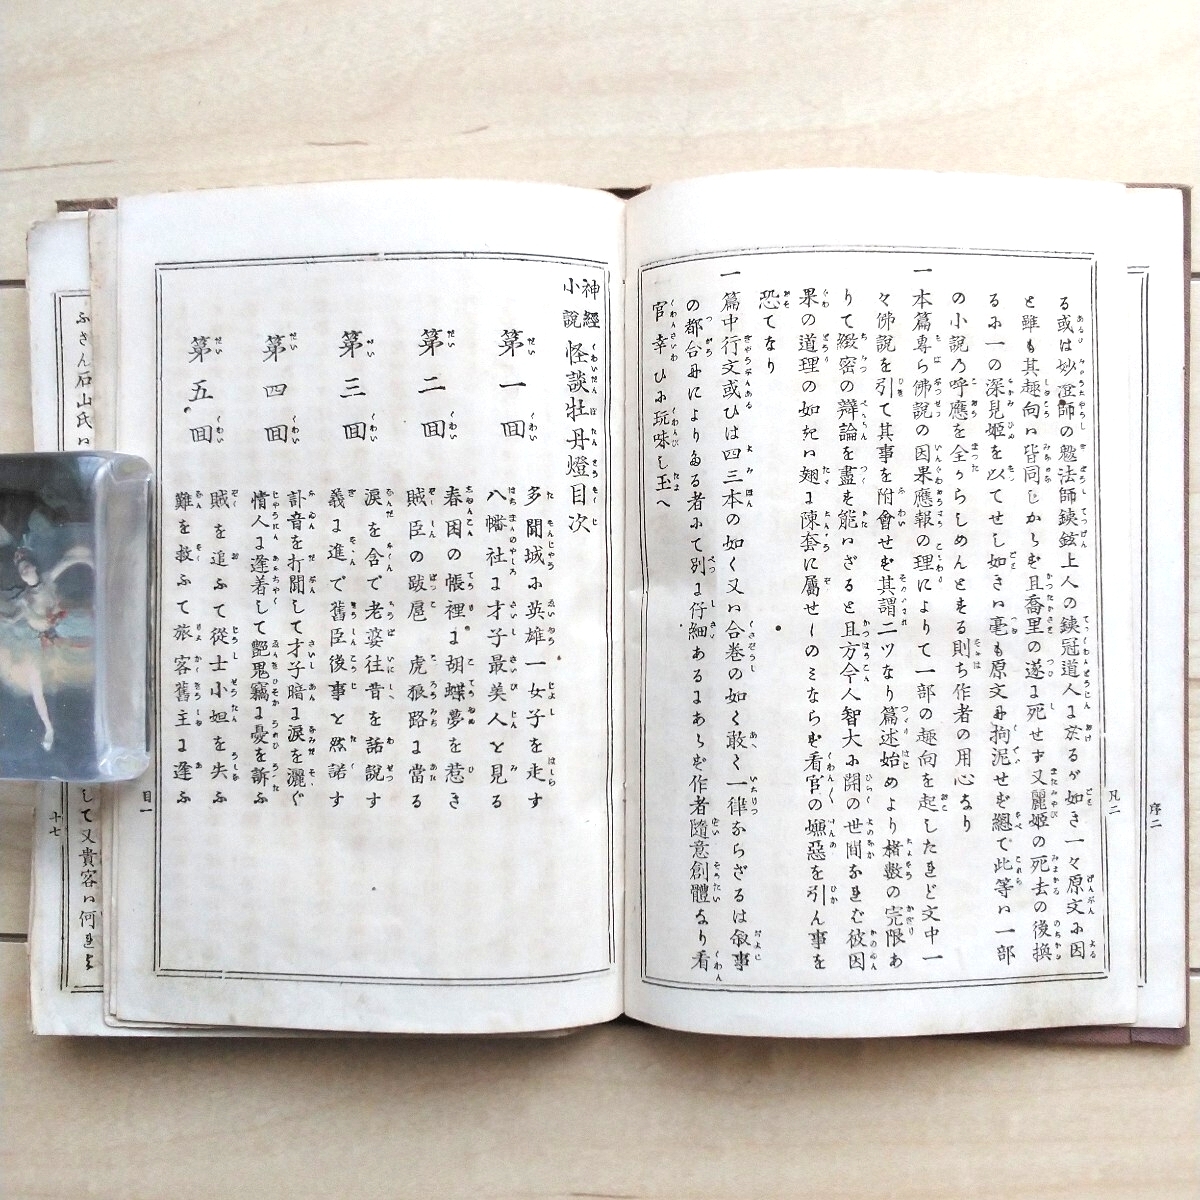 る或は妙澄師の尅法師鐵鉉上人の鐵冠道人に於るが如き一々原文に因
と雖も其趣向ハ皆同じからず且喬里の遂に死せず又麗姫の死去の後換
るに一の深見姫を以てせし如きハ毫も原文に拘泥せず總て此等ハ一部
の小説乃呼應を全からしめんとする則ち作者の用心なり
一本篇専ら佛説の因果應報の理によりて一部の趣向を起したれど文中一
々佛説を引て其事を附會せず其謂二ツなり篇述始めより楮数の完限あ
りて緻密の辯論を盡す能ハざると且方今人智大に開の世間なれば彼因
果の道理の如きハ翅に陳套に屬せしのミならず看官の嫌惡を引ん事を
恐てなり
一篇中行文或ひは四三本の如く又ハ合巻の如く敢て一律ならざるは叙事
の都合によりたる者にて別に仔細あるにあらず作者隨意創體なり看
官幸ひに玩味し玉へ
凡二
序二
神經小説 怪談牡丹燈目次
第一回 多聞城に英雄一女子を走す
八幡社に才子最美人と見る
第二回 春困の帳裡に胡蝶夢を惹き
賊臣の跋扈 虎狼路に當る
第三回 涙を含で老婆往昔を話説す
義に進で舊臣後事と然諾す
第四回 訃音を打聞して才子暗に涙を灑ぐ
情人に逢着して艶鬼竊に憂を訴ふ
第五回 賊を追ふて從士小妲を失ふ
難を救ふて旅客舊主に逢ふ
目一
ふさん石山氏ハ
して又貴客ハ何れよ
十七